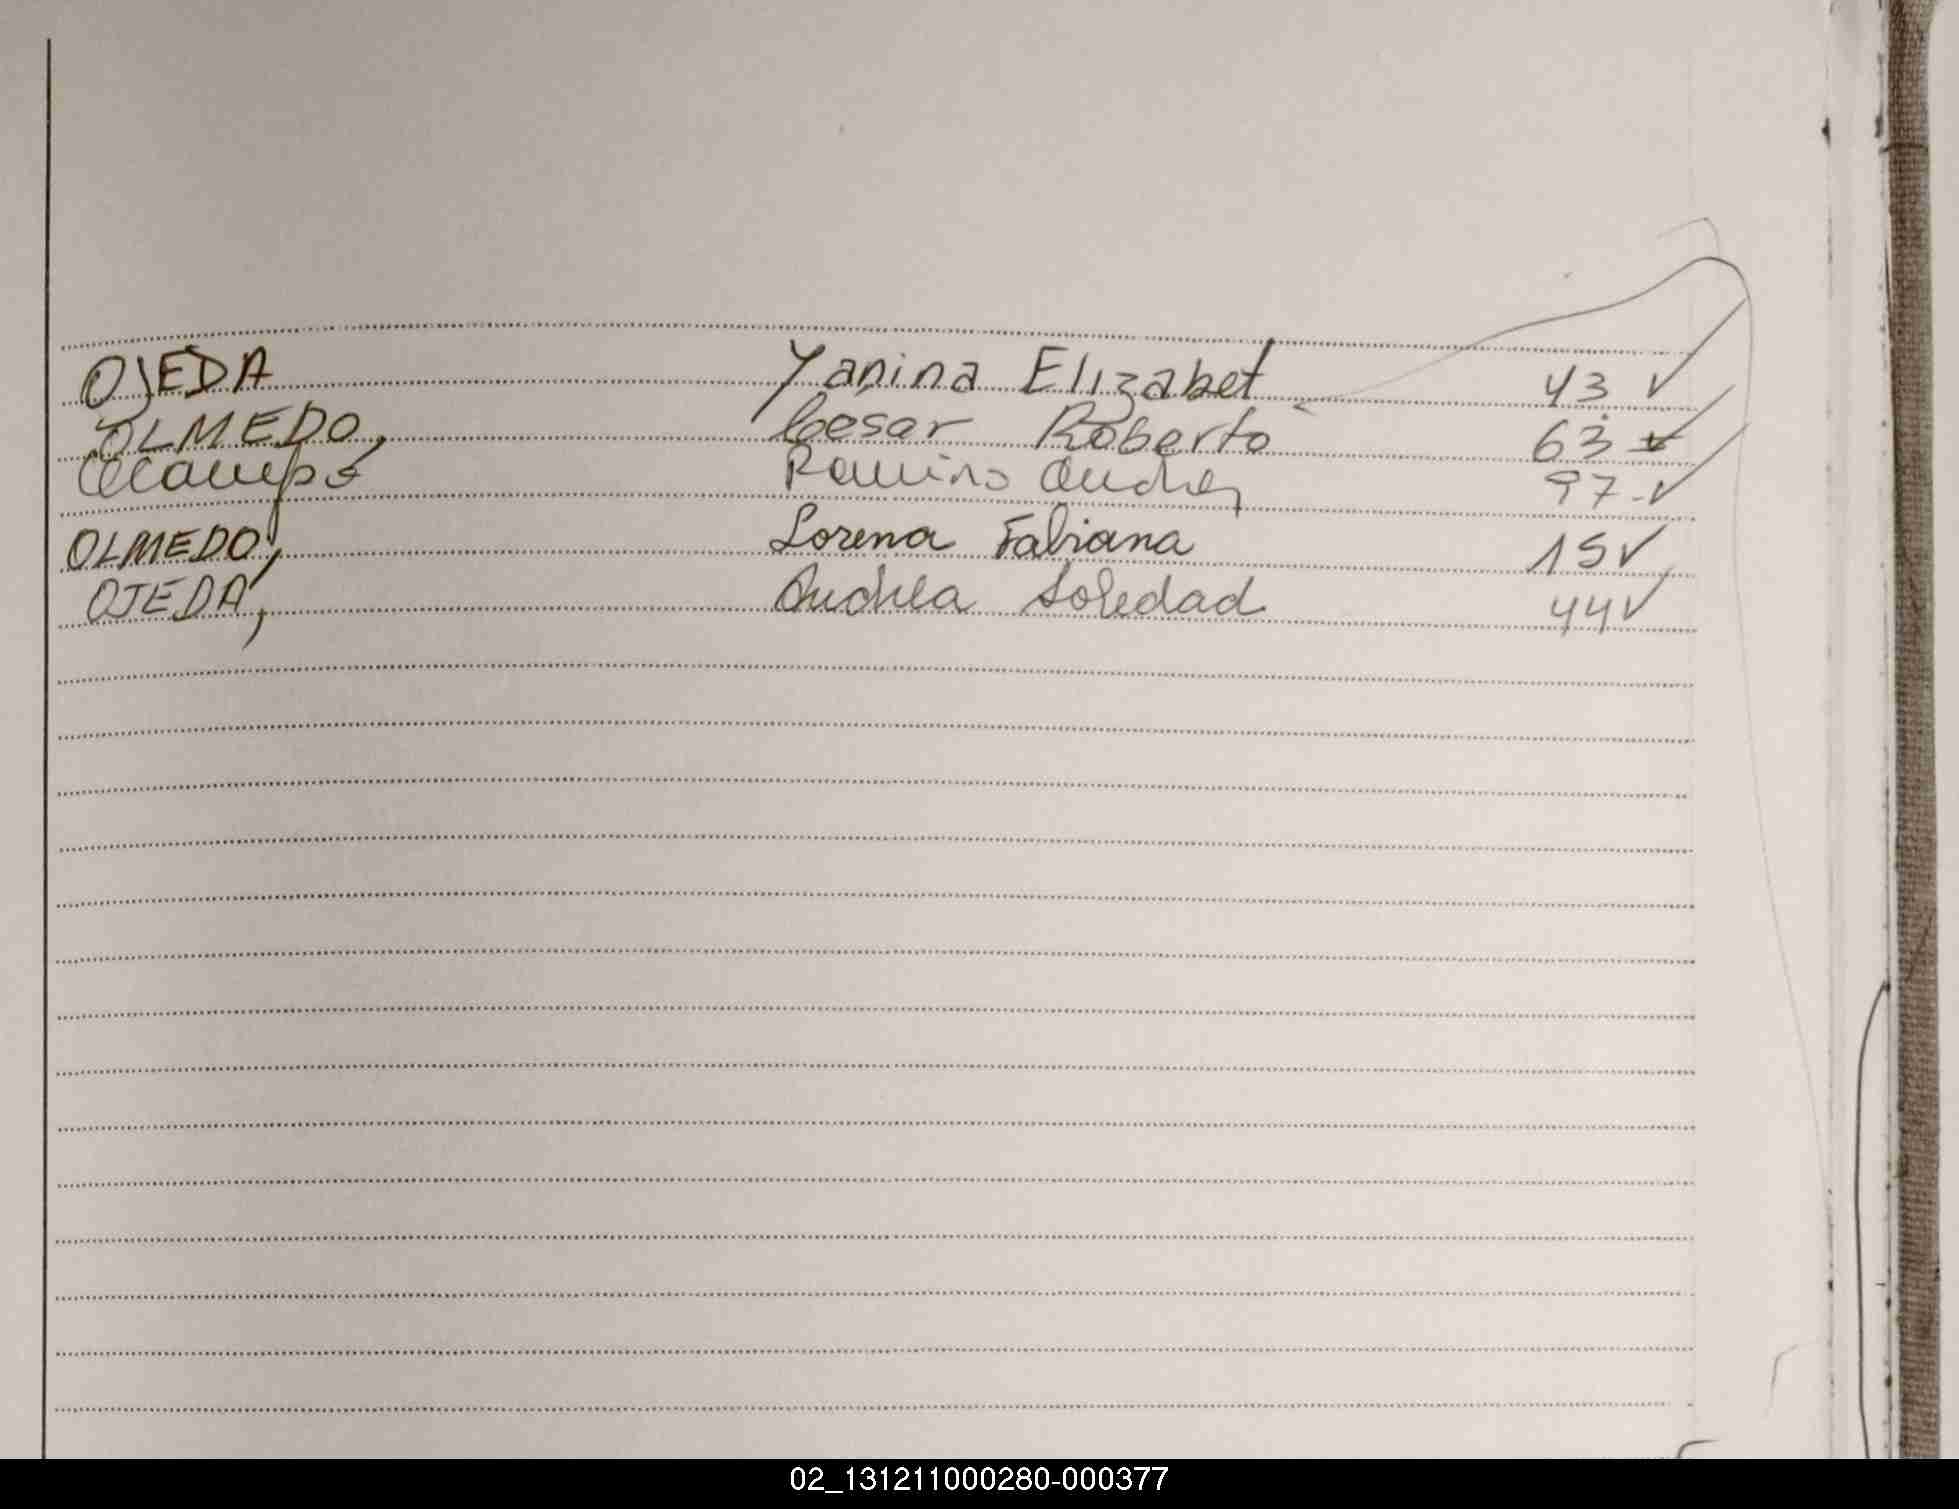 OJEDA Yanina Elizabet 43 ✓
OLMEDO, César Roberto 63 ✓
Ocampo Ramiro Andres 97 ✓
OLMEDO, Lorena Fabiana 15 ✓
OJEDA, Andrea Soledad 44 ✓
02_131211000280-000377